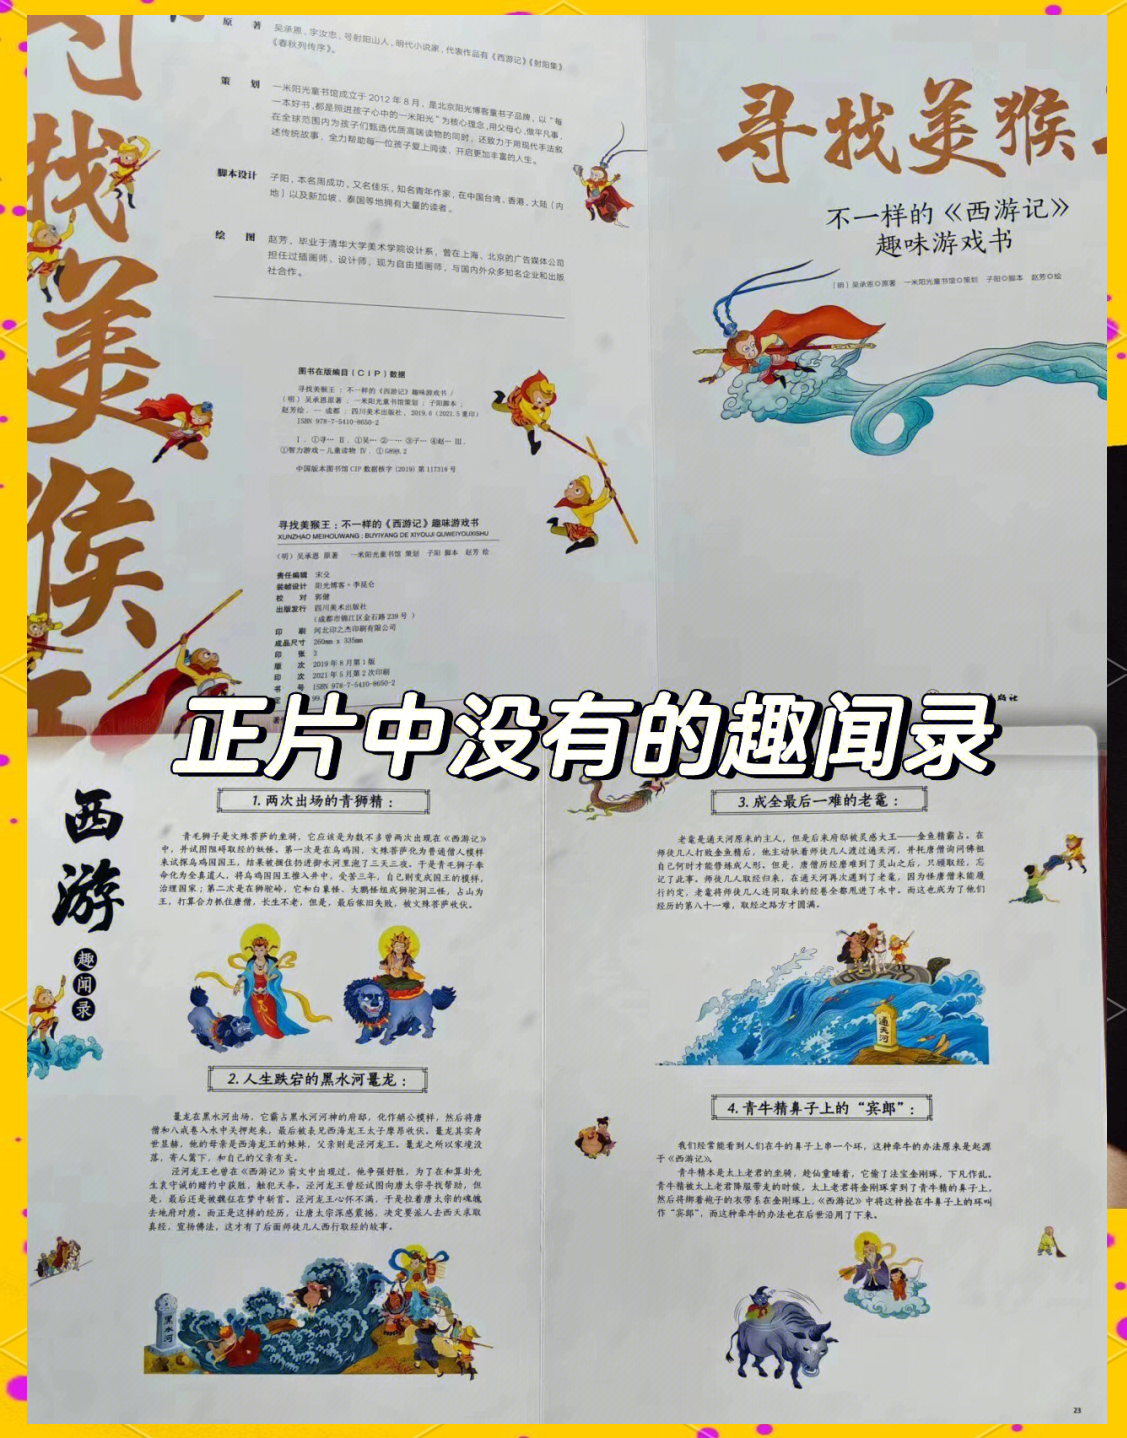 寻找美猴王
原 著 吴承恩，字汝忠，号射阳山人，明代小说家，代表作品有《西游记》《射阳集》
《春秋列传序》。
策 划 一米阳光童书馆成立于 2012 年 8 月，是北京阳光博客童书子品牌，以“每
一本好书，都是照进孩子心中的一米阳光”为核心理念，用父母心，做平凡事，
在全球范围内为孩子们甄选优质高端读物的同时，还致力于用现代手法叙
述传统故事，全力帮助每一位孩子爱上阅读，开启更加丰富的人生。
脚本设计 子阳，本名周成功，又名佳乐，知名青年作家，在中国台湾、香港、大陆（内
地）以及新加坡、泰国等地拥有大量的读者。
绘 图 赵芳，毕业于清华大学美术学院设计系，曾在上海、北京的广告媒体公司
担任过插画师、设计师，现为自由插画师，与国内外众多知名企业和出版
社合作。
图书在版编目（CIP）数据
寻找美猴王：不一样的《西游记》趣味游戏书 /
（明）吴承恩原著；一米阳光童书馆策划；子阳脚本；
赵芳绘. -- 成都：四川美术出版社，2019.6（2021.5重印）
ISBN 978-7-5410-8650-2
Ⅰ．①寻… Ⅱ．①吴… ②一… ③子… ④赵… Ⅲ．
①智力游戏－儿童读物 Ⅳ．①G898.2
中国版本图书馆CIP数据核字(2019)第117318号
寻找美猴王：不一样的《西游记》趣味游戏书
XUNZHAO MEIHOUWANG: BUYIYANG DE XIYOUJI QUWEIYOUXISHU
（明）吴承恩 原著 一米阳光童书馆 策划 子阳 脚本 赵芳 绘
责任编辑 宋殳
装帧设计 阳光博客·李昆仑
校 对 郭健
出版发行 四川美术出版社
（成都市锦江区金石路239号）
印 刷 河北印之杰印刷有限公司
成品尺寸 260mm x 335mm
印 张 3
版 次 2019年8月第1版
印 次 2021年5月第2次印刷
书 号 ISBN 978-7-5410-8650-2
寻找美猴王
不一样的《西游记》
趣味游戏书
［明］吴承恩◎原著 一米阳光童书馆◎策划 子阳◎脚本 赵芳◎绘
正片中没有的趣闻录
西游
趣闻录
1.两次出场的青狮精：
青毛狮子是文殊菩萨的坐骑，它应该是为数不多曾两次出现在《西游记》
中，并试图阻碍取经的妖怪。第一次是在乌鸡国，文殊菩萨化为普通僧人模样
来试探乌鸡国国王，结果被捆住扔进御水河里泡了三天三夜。于是青毛狮子奉
命化为全真道人，将乌鸡国国王推入井中，受苦三年，自己则变成国王的模样，
治理国家；第二次是在狮驼岭，它和白象怪、大鹏怪组成狮驼洞三怪，占山为
王，打算合力抓住唐僧，长生不老，但是，最后依旧失败，被文殊菩萨收伏。
2.人生跌宕的黑水河鼍龙：
鼍龙在黑水河出场，它霸占黑水河河神的府邸，化作艄公模样，然后将唐
僧和八戒卷入水中关押起来，最后被表兄西海龙王太子摩昂收伏。鼍龙其实身
世显赫，他的母亲是西海龙王的妹妹，父亲则是泾河龙王。鼍龙之所以家境没
落，寄人篱下，和自己的父亲有关。
泾河龙王也曾在《西游记》前文中出现过，他争强好胜，为了在和算卦先
生袁守诚的赌约中获胜，触犯天条。泾河龙王曾经试图向唐太宗寻找帮助，但
是，最后还是被魏征在梦中斩首。泾河龙王心怀不满，于是拉着唐太宗的魂魄
去地府对质。而正是这样的经历，让唐太宗深感震撼，决定要派人去西天求取
真经，宣扬佛法，这才有了后面师徒几人西行取经的故事。
黑水河
3.成全最后一难的老鼋：
老鼋是通天河原来的主人，但是后来府邸被灵感大王——金鱼精霸占。在
师徒几人打败金鱼精后，他主动驮着师徒几人渡过通天河，并托唐僧询问佛祖
自己何时才能修炼成人形。但是，唐僧历经磨难到了灵山之后，只顾取经，忘
记了此事。师徒几人取经归来，在通天河再次遇到了老鼋，因为怪唐僧未能履
行约定，老鼋将师徒几人连同取来的经卷全都甩进了水中。而这也成为了他们
经历的第八十一难，取经之路方才圆满。
通天河
4.青牛精鼻子上的“宾郎”：
我们经常能看到人们在牛的鼻子上串一个环，这种牵牛的办法原来是起源
于《西游记》。
青牛精本是太上老君的坐骑，趁仙童睡着，它偷了法宝金刚琢，下凡作乱。
青牛精被太上老君降服带走的时候，太上老君将金刚琢穿到了青牛精的鼻子上，
然后将绑着袍子的衣带系在金刚琢上，《西游记》中将这种拴在牛鼻子上的环叫
作“宾郎”，而这种牵牛的办法也在后世沿用了下来。
23